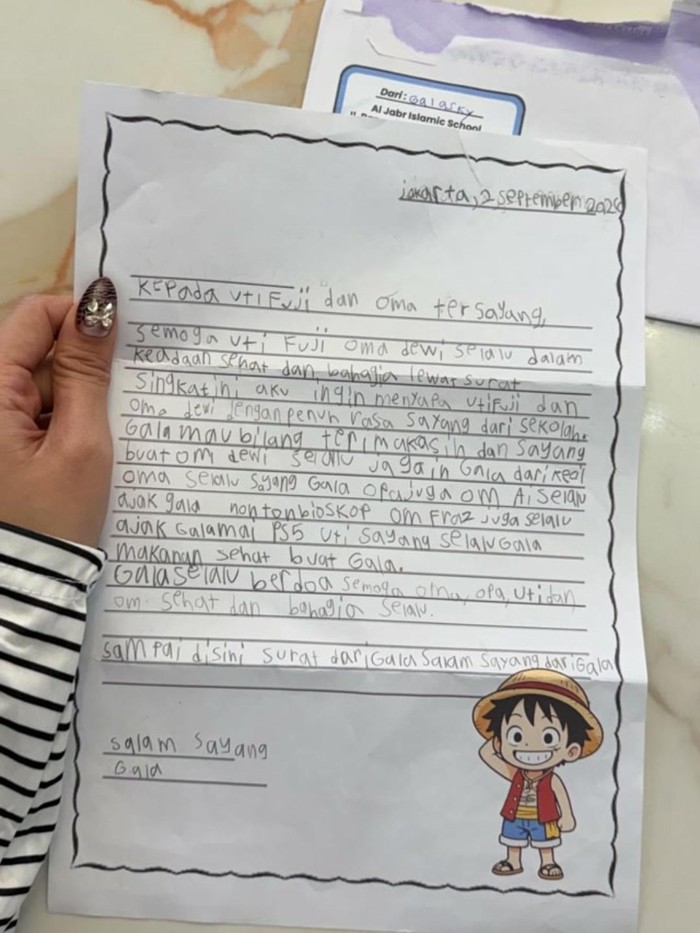 Dari: Galasky
Al Jabr Islamic School
jakarta, 2 September 202
KEPada uti Fuji dan oma tersayang,
Semoga uti Fuji oma dewi selalu dalam
keadaan sehat dan bahagia lewat surat
singkatini aku ingin menyapa utiFuji dan
oma dewi denganpenuh rasa sayang dari sekolah.
Gala mau bilang terimakasih dan sayang
buat om dewi selalu jagain Gala dari
oma selalu sayang Gala opajuga om Ai selalu
ajak gala nontonbioskop om Fraz juga selalu
ajak Galamai PS5 uti sayang selalu Gala
makanan sehat buat Gala.
Galaselalu berdoa semoga oma, opa, uti dan
om. sehat dan bahagia selalu.
sampai disini surat dariGala salam sayang dariGala
salam sayang
Gala